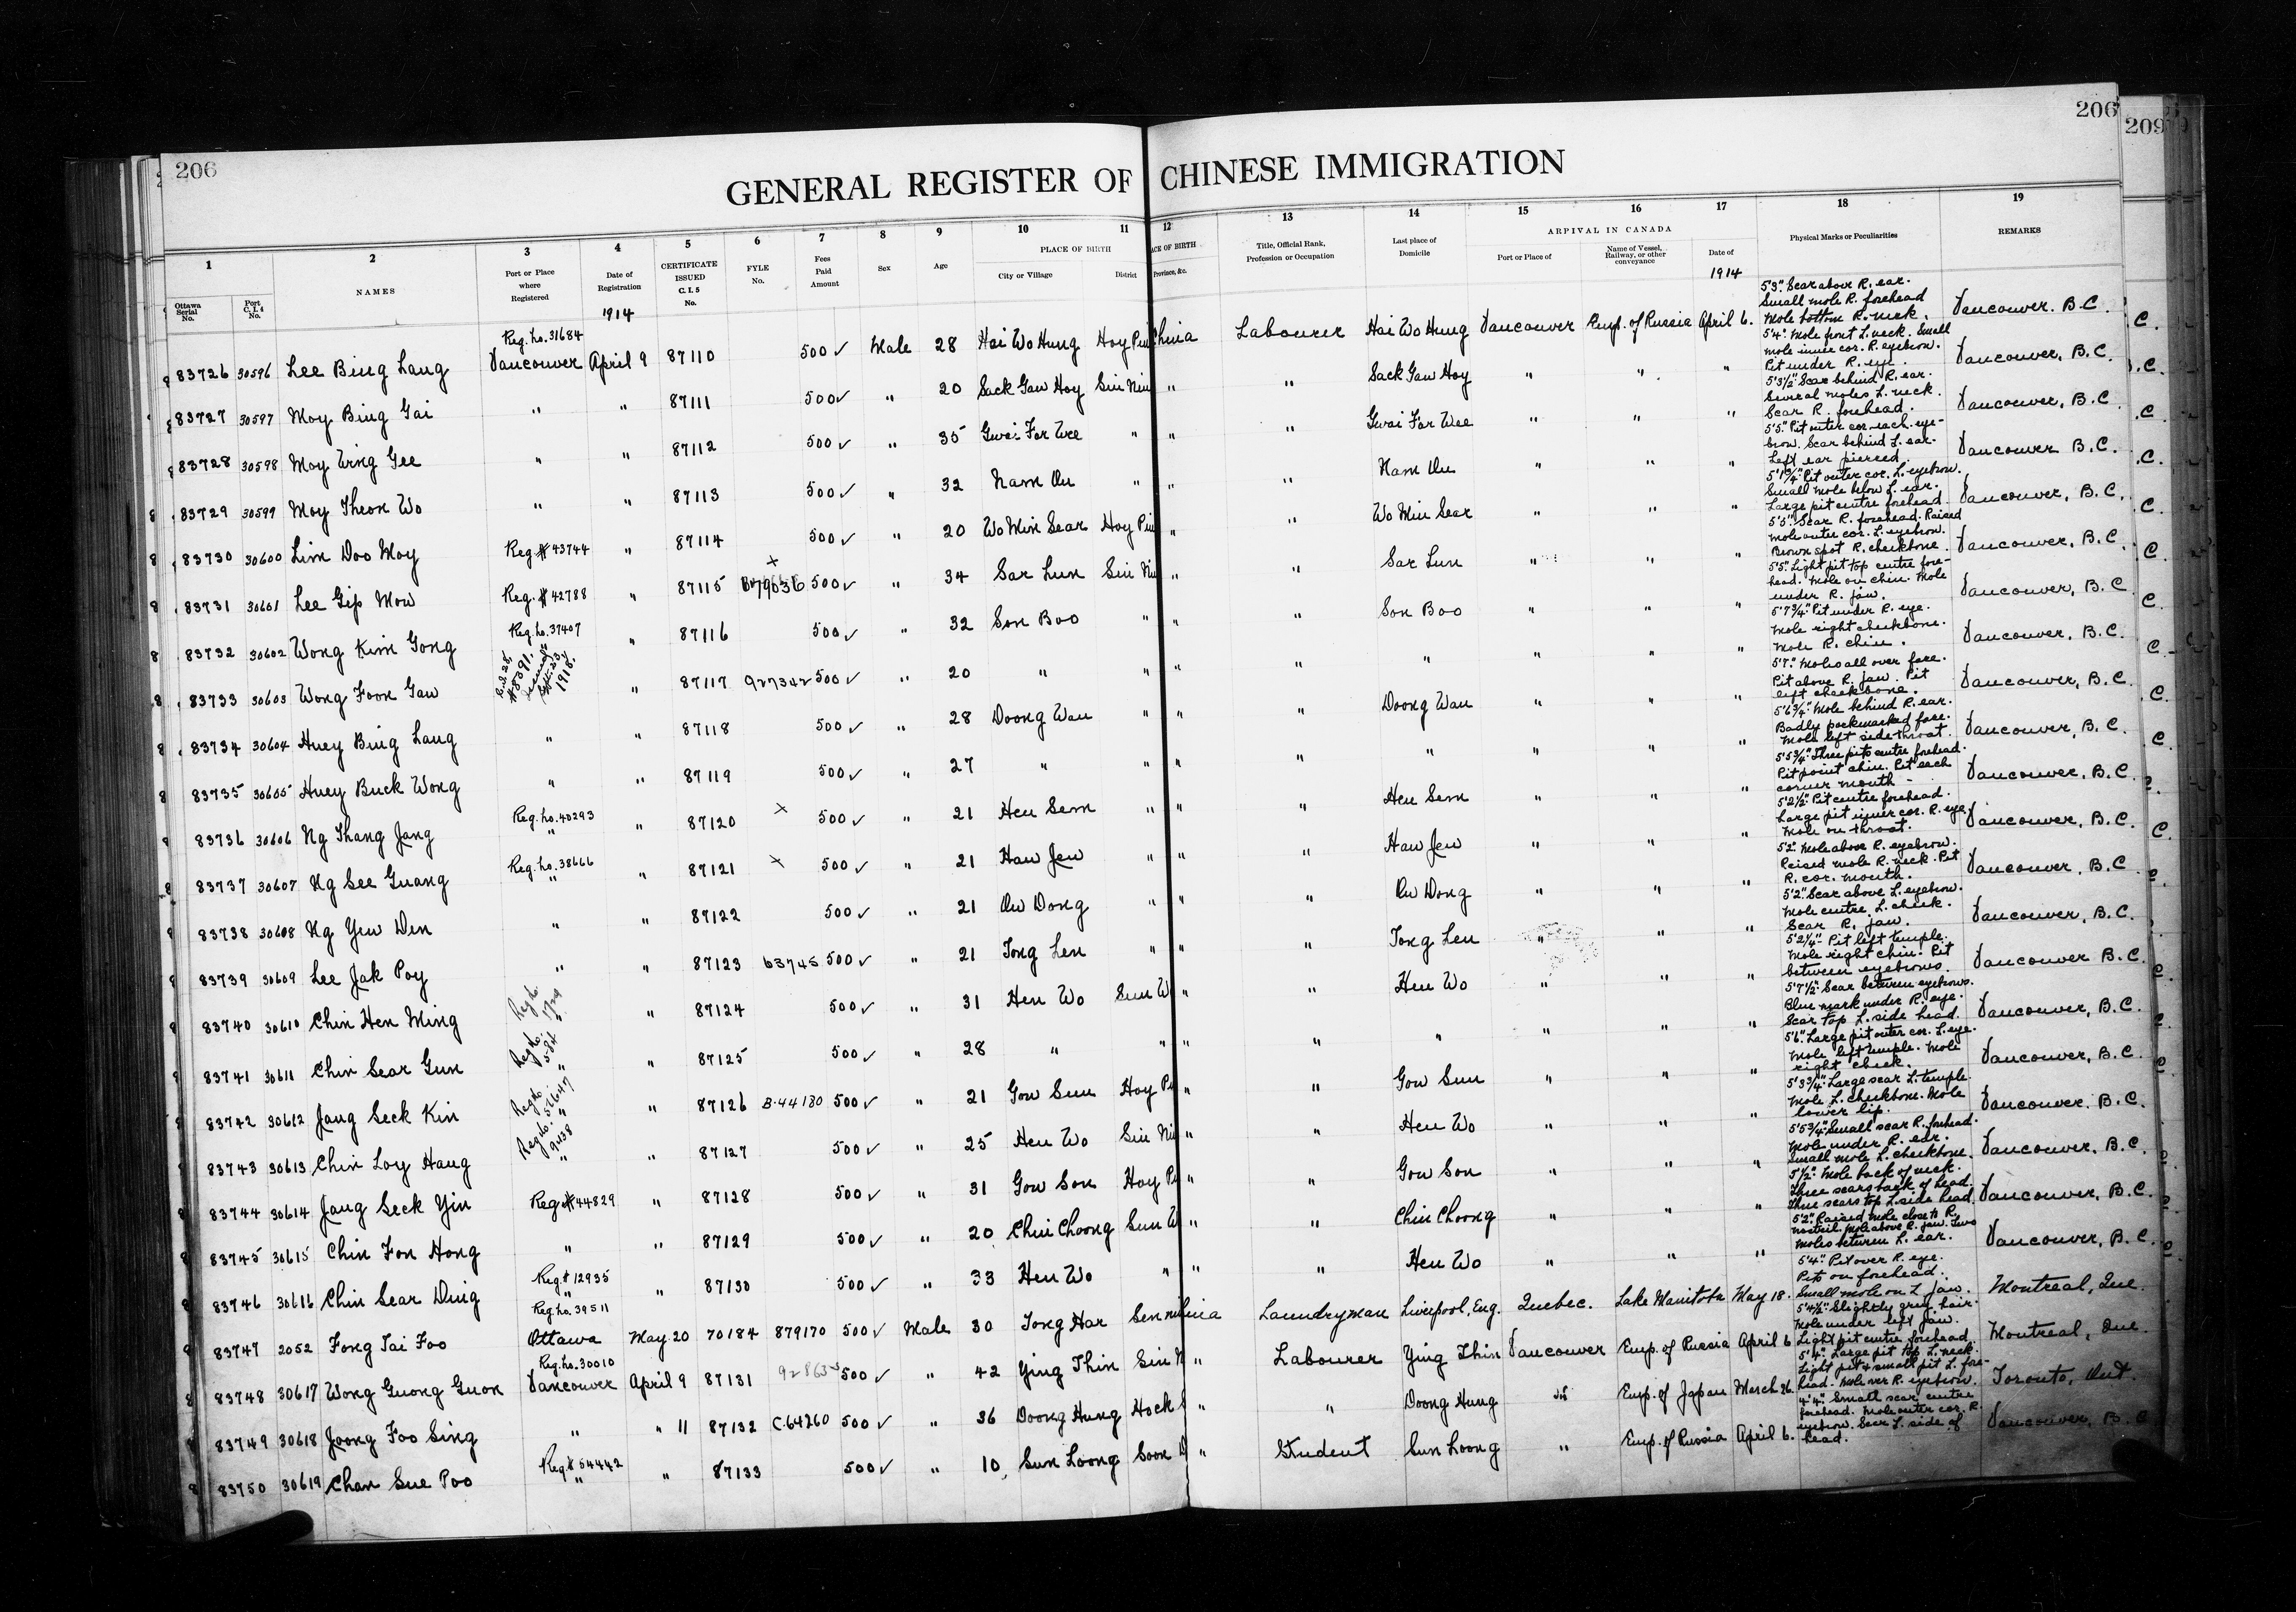 206
206
209
GENERAL REGISTER OF CHINESE IMMIGRATION
1 2 3 4 5 6 7 8 9 10 11 12 13 14 15 16 17 18 19
Ottawa Serial No.
Port C.I.4 No.
NAMES
Port or Place where Registered
Date of Registration
1914
CERTIFICATE ISSUED C.I.5 No.
FYLE No.
Fees Paid Amount
Sex
Age
PLACE OF BIRTH
City or Village
District
Province, &c.
Title, Official Rank, Profession or Occupation
Last place of Domicile
ARRIVAL IN CANADA
Port or Place of
Name of Vessel, Railway, or other conveyance
Date of
1914
Physical Marks or Peculiarities
REMARKS
83726 30596 Lee Bing Lang Reg. no. 31684 Vancouver April 9 87110 500 ✓ Male 28 Hai Wo Hung Hoy Pin China Labourer Hai Wo Hung Vancouver Emp. of Russia April 6. 5'3". Scar above R. ear. Small mole R. forehead Mole bottom R. neck. Vancouver. B.C.
83727 30597 Moy Bing Gai " " 87111 500 ✓ " 20 Sack Gaw Hoy Sin Nin " " Sack Gaw Hoy " " " 5'4". Mole front L. neck. Small mole inner cor. R. eyebrow. Pit under R. eye. Vancouver, B.C.
83728 30598 Moy Wing Gee " " 87112 500 ✓ " 35 Gwai Far Wee " " " Gwai Far Wee " " " 5'3½" Scar behind R. ear. Several moles L. neck. Scar R. forehead. Vancouver, B.C
83729 30599 Moy Theon Wo " " 87113 500 ✓ " 32 Nam On " " " Nam On " " " 5'5". Pit outer cor. each eyebrow. Scar behind L. ear. Left ear pierced. Vancouver B.C.
83730 30600 Lim Doo Moy Reg # 43744 " 87114 500 ✓ " 20 Wo Min Sear Hoy Pin " " Wo Min Sear " " " 5'1¾" Pit outer cor. L. eyebrow. Small mole below L. ear. Large pit centre forehead. Vancouver, B.C.
83731 30601 Lee Gip Mow Reg. # 42788 " 87115 500 ✓ " 34 Sar Lun Sin Nin " " Sar Lun " " " 5'5". Scar R. forehead. Raised mole outer cor. L. eyebrow. Brown spot R. cheekbone. Vancouver, B.C.
83732 30602 Wong Kim Gong Reg. no. 37407 " 87116 500 ✓ " 32 Son Boo " " " Son Boo " " " 5'5". Light pit top centre forehead. Mole on chin. Mole under R. jaw. Vancouver, B.C
83733 30603 Wong Foon Gaw C.I.28, #8391, Sept. 23, 1918. " 87117 927342 500 ✓ " 20 " " " " " " " " 5'7¾" Pit under R. eye. Mole right cheekbone. Mole R. chin. Vancouver, B.C.
83734 30604 Huey Bing Lang " " 87118 500 ✓ " 28 Doong Wan " " " Doong Wan " " " 5'7". Moles all over face. Pit above R. jaw. Pit left cheekbone. Vancouver, B.C.
83735 30605 Huey Buck Wong " " 87119 500 ✓ " 27 " " " " " " " " 5'6¾". Mole behind R. ear. Badly pockmarked face. Mole left side throat. Vancouver, B.C.
83736 30606 Ng Thang Jang Reg. no. 40293 " " 87120 x 500 ✓ " 21 Hen Sem " " " Hen Sem " " " 5'5¾". Three pits centre forehead. Pit point chin. Pit each corner mouth Vancouver, B.C.
83737 30607 Ng See Guang Reg. no. 38666 " " 87121 x 500 ✓ " 21 Haw Jew " " " Haw Jew " " " 5'2½". Pit centre forehead. Large pit inner cor. R. eye. Mole on throat. Vancouver, B.C.
83738 30608 Ng Yew Den " " 87122 500 ✓ " 21 On Dong " " " On Dong " " " 5'2". Mole above R. eyebrow. Raised mole R. neck. Pit R. cor. mouth. Vancouver, B.C
83739 30609 Lee Jak Poy " " 87123 63745 500 ✓ " 21 Tong Len " " " Tong Len " " " 5'2". Scar above L. eyebrow. Mole centre L. cheek. Scar R. jaw. Vancouver, B.C.
83740 30610 Chin Hen Ming Reg No. " " 87124 500 ✓ " 31 Hen Wo Sun W " " Hen Wo " " " 5'2¼". Pit left temple. Mole right chin. Pit between eyebrows. Vancouver B.C.
83741 30611 Chin Sear Gun Reg No. " " 87125 500 ✓ " 28 " " " " " " " " 5'7½". Scar between eyebrows. Blue mark under R. eye. Scar top L. side head. Vancouver, B.C.
83742 30612 Jang Seck Kin Reg No. " " 87126 B.44180 500 ✓ " 21 Gow Sun Hoy Pi " " Gow Sun " " " 5'6". Large pit outer cor. L. eye. Mole left temple. Mole right cheek. Vancouver, B.C.
83743 30613 Chin Loy Hang Reg No. " " 87127 500 ✓ " 25 Hen Wo Sin Ni " " Hen Wo " " " 5'3¾". Large scar L. temple. Mole L. cheekbone. Mole lower lip. Vancouver. B.C.
83744 30614 Jang Seck Yin Reg # 44829 " 87128 500 ✓ " 31 Gow Son Hoy Pi " " Gow Son " " " 5'5¾". Small scar R. forehead. Mole under R. ear. Small mole L. cheekbone. Vancouver, B.C.
83745 30615 Chin Fon Hong " " 87129 500 ✓ " 20 Chin Choong Sun W " " Chin Choong " " " 5'½". Mole back of neck. Three scars back of head. Three scars top L. side head. Vancouver, B.C.
83746 30616 Chin Sear Ding Reg. # 12935 " 87130 500 ✓ " 33 Hen Wo " " " Hen Wo " " " 5'2". Raised mole close to R. nostril. Mole above R. jaw. Two moles between L. ear. Vancouver, B.C.
83747 2052 Fong Tai Foo Reg. no. 39511 Ottawa May 20 70184 879170 500 ✓ Male 30 Tong Har Sen nin China Laundryman Liverpool, Eng. Quebec. Lake Manitoba May 18. 5'4". Pit over R. eye. Pits on forehead. Small mole on L. jaw. Montreal, Que.
83748 30617 Wong Guong Guon Reg. no. 30010 Vancouver April 9 87131 500 ✓ " 42 Ying Thin Sin N " Labourer Ying Thin Vancouver Emp. of Russia April 6 5'4½". Slightly grey hair. Mole under left jaw. Light pit centre forehead. Montreal, Que.
83749 30618 Joong Foo Sing " " 11 87132 C.64260 500 ✓ " 36 Doong Hung Hock S " " Doong Hung " Emp. of Japan March 26. 5'4". Large pit top L. neck. Light pit & small pit L. forehead. Mole over R. eyebrow. Toronto, Ont.
83750 30619 Chan Sue Poo Reg. # 54442 " " 87133 500 ✓ " 10 Sun Loong Soon D " Student Sun Loong " Emp. of Russia April 6. 4'4". Small scar centre forehead. Mole outer cor. R. eyebrow. Scar L. side of head. Vancouver, B.C